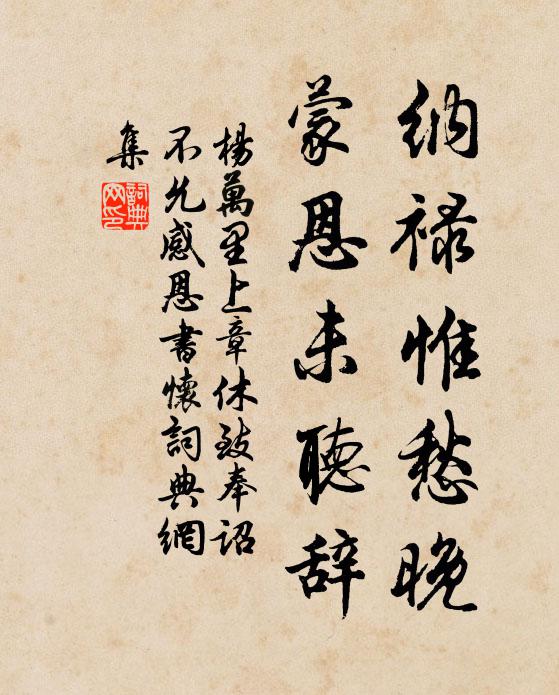 納禄惟愁晚
蒙恩未聽辞
楊萬里上章休致奉詔
不允感恩書懷詞典網
集
詞典
网印